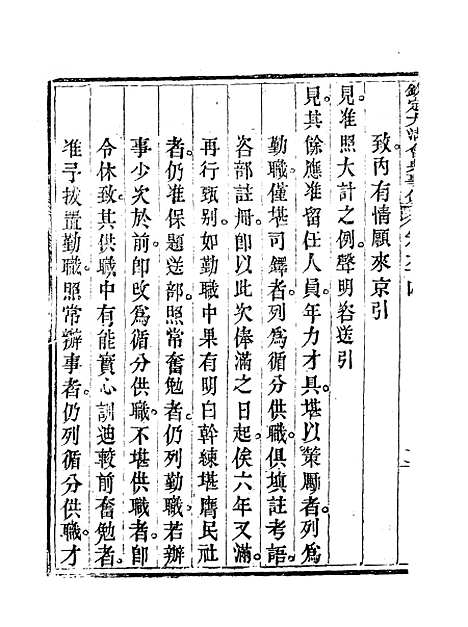 致內有情願來京引
見准照大計之例聲明咨送引
見其餘應准留任人員年力才具堪以策厲者列爲
勤職僅堪司鐸者列爲循分供職俱塡註考語
咨部註冊卽以此次俸滿之日起俟六年又滿
再行甄別如勤職中果有明白幹練堪膺民社
者仍准保題送部照常奮勉者仍列勤職若辦
事少次於前卽改爲循分供職不堪供職者卽
令休致其供職中有能實心訓迪較前奮勉者
准予拔置勤職照常辦事者仍列循分供職才